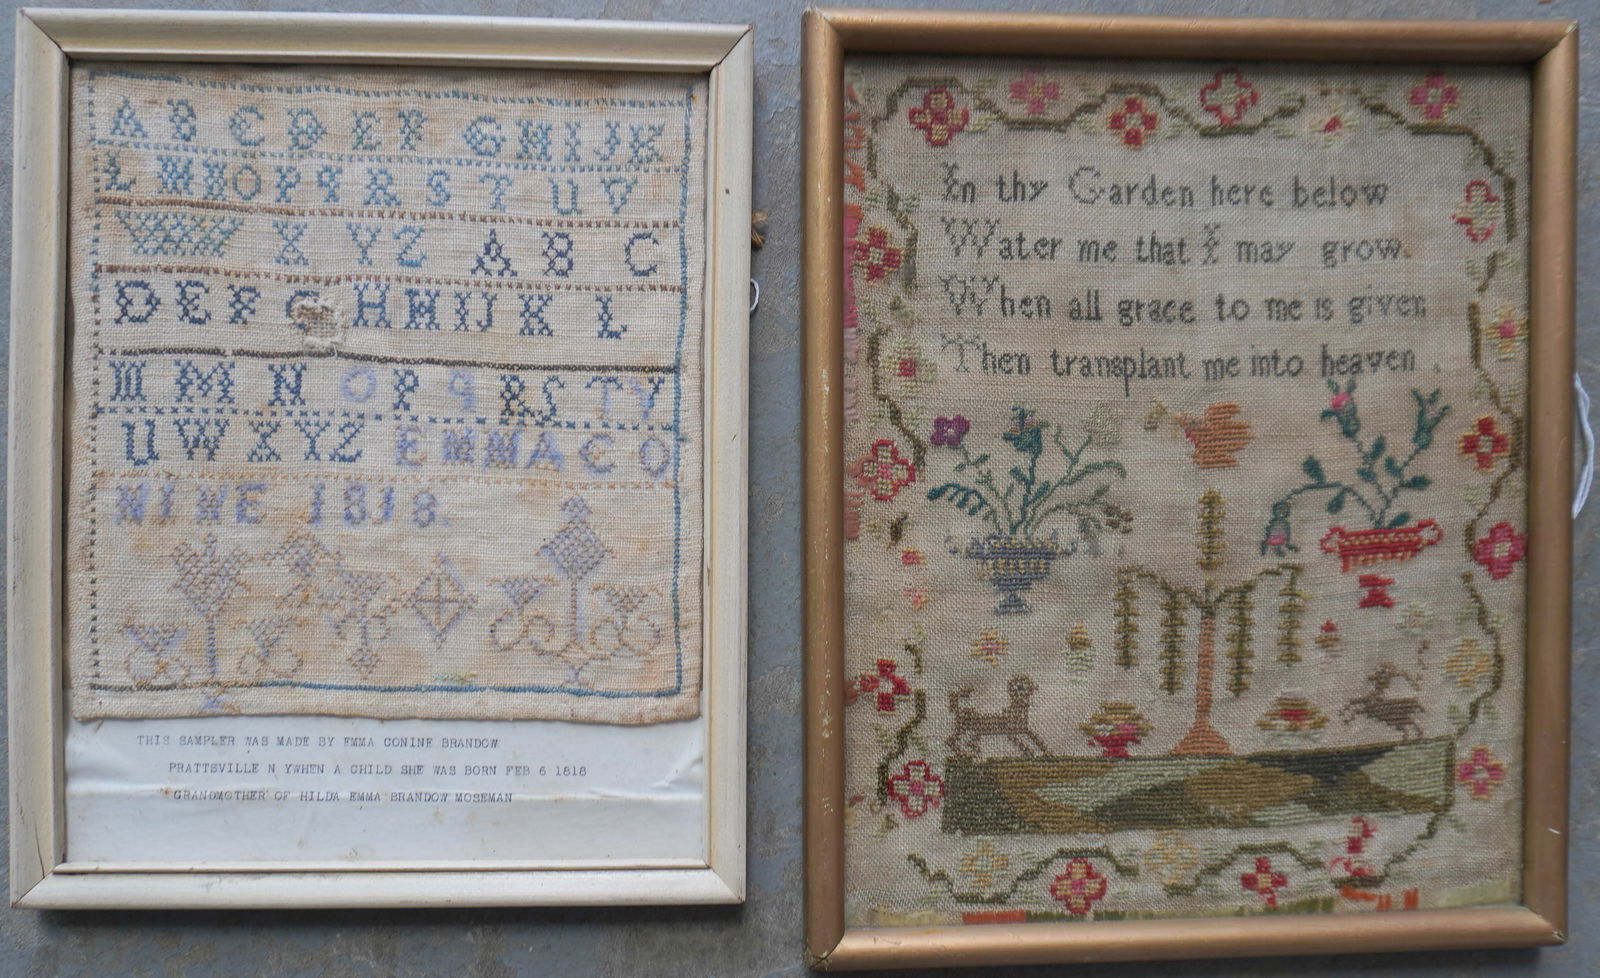 A B C D E F G H I J K
L M N O P Q R S T U V
W X Y Z A B C
D E F G H H I J K L
M M N O P Q R S T Y
U W X Y Z E M M A C O
N I N E 1818.
THIS SAMPLER WAS MADE BY EMMA CONINE BRANDOW
PRATTSVILLE N YWHEN A CHILD SHE WAS BORN FEB 6 1818
GRANDMOTHER OF HILDA EMMA BRANDOW MOSEMAN
In thy Garden here below
Water me that I may grow.
When all grace to me is given
Then transplant me into heaven .